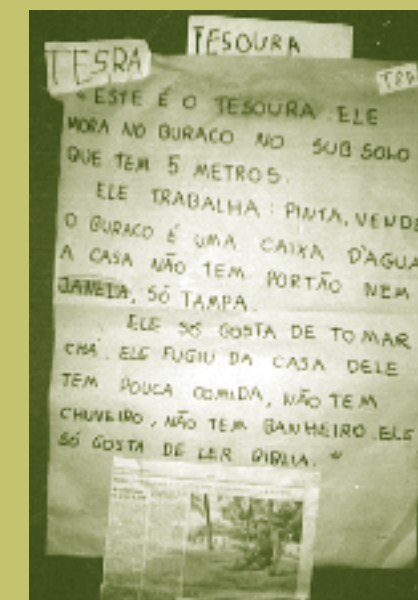 TESOURA
TESRA
"ESTE É O TESOURA. ELE
MORA NO BURACO NO SUBSOLO
QUE TEM 5 METROS.
ELE TRABALHA: PINTA, VENDE
O BURACO É UMA CAIXA D'AGUA
A CASA NÃO TEM PORTÃO NEM
JANELA, SÓ TAMPA.
ELE SÓ GOSTA DE TOMAR
CHÁ. ELE FUGIU DA CASA DELE
TEM POUCA COMIDA, NÃO TEM
CHUVEIRO, NÃO TEM BANHEIRO. ELE
SÓ GOSTA DE LER BIBLIA."